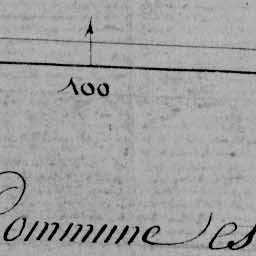 100
Commune es